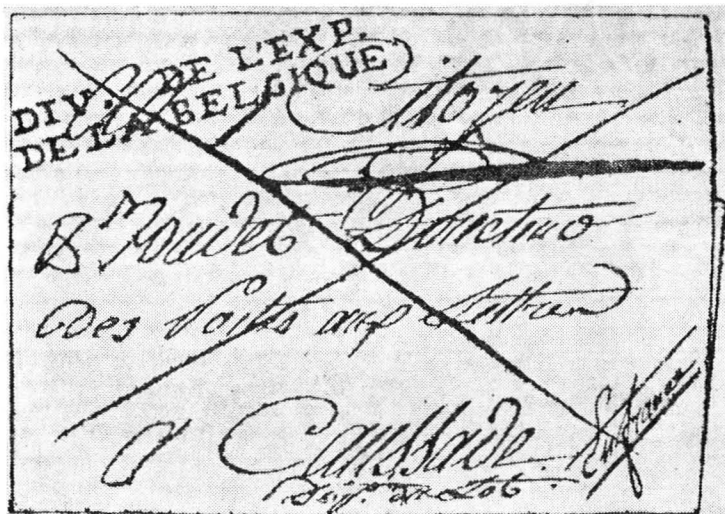 DIV. DE L'EXP.
DE LA BELGIQUE
Citoyen
Directeur
des Postes aux Lettres
a Caussade
Dep.t du Lot